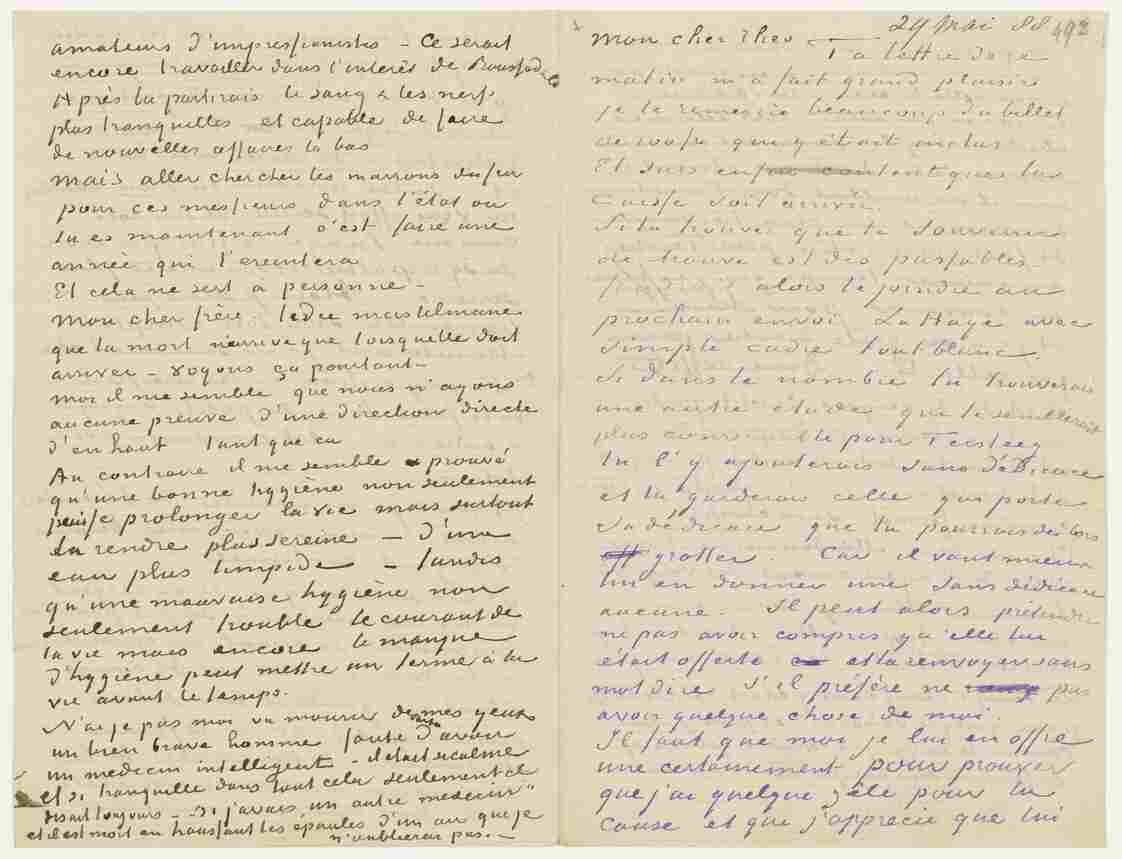 amateurs d'impressionistes – Ce serait
encore travailler dans l'interêt de Boussod & Co
Après tu partirais le sang & les nerfs
plus tranquilles et capable de faire
de nouvelles affaires là bas
mais aller chercher les marrons du feu
pour ces messieurs dans l'état où
tu es maintenant c'est faire une
année qui t'ereintera
Et cela ne sert à personne –
Mon cher frère – l'edée musulmane
que la mort n'arrive que lorsqu'elle doit
arriver – voyons ça pourtant –
moi il me semble que nous n'ayons
aucune preuve d'une direction directe
d'en haut tant que ça
Au contraire il me semble prouvé
qu'une bonne hygiène non seulement
puisse prolonger la vie mais surtout
la rendre plus sereine – d'une
eau plus limpide – tandis
qu'une mauvaise hygiène non
seulement trouble le courant de
la vie mais encore le manque
d'hygiène peut mettre un terme à la
vie avant le temps.
N'ai je pas moi vu mourir devant mes yeux
un bien brave homme faute d'avoir
un medecin intelligent – il était si calme
et si tranquille dans tout cela seulement il
disait toujours – "si j'avais un autre medecin"
et il est mort en haussant les épaules d'un air que je
n'oublierai pas. –
29 Mai 88 492
Mon cher Theo – Ta lettre de ce
matin m'a fait grand plaisir
je te remercie beaucoup du billet
de 100 fr que y était inclus
Et suis content que la
Caisse soit arrivée.
Si tu trouves que le Souvenir
de Mauve est des passables
alors le joindre au
prochain envoi La Haye avec
simple cadre tout blanc.
Si dans le nombre tu trouverais
une autre étude que te semblerait
plus pour Tersteeg
tu l'y ajouterais sans dédicace
et tu garderais celle qui porte
sa dédicace que tu pourrais dès lors
gratter. Car il vaut mieux
lui en donner une sans dédicace
aucune. Il peut alors prétendre
ne pas avoir compris qu'elle lui
était offerte et la renvoyer sans
mot dire s'il préfère ne pas
avoir quelque chose de moi.
Il faut que moi je lui en offre
une certainement pour prouver
que j'ai quelque zèle pour la
cause et que j'apprécie que lui